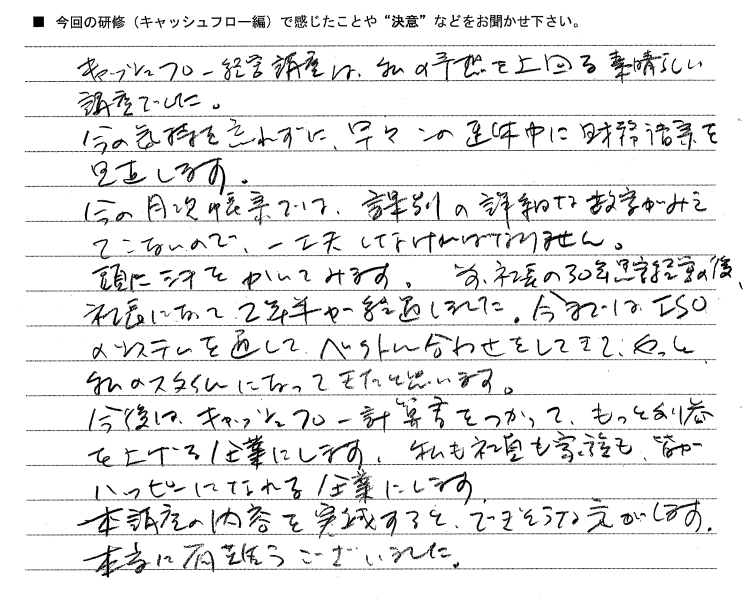 ■ 今回の研修(キャッシュフロー編)で感じたことや“決意”などをお聞かせ下さい。
キャッシュフロー経営講座は、私の予想を上回る素晴らしい
講座でした。
今の気持を忘れずに、早々この連休中に財務諸表を
見直します。
今の月次帳票では、課別の詳細な数字がみえ
てこないので、一工夫しなければなりません。
頭に汗をかいてみます。前社長の30年黒字経営の後、
社長になって2年半が経過しました。今まではISO
のシステムを通して、ベクトル合わせをしてきて、やっと
私のスタイルになってきたと思います。
今後は、キャッシュフロー計算書をつかって、もっと利益
を上げる企業にします。私も社員も家族も、皆が
ハッピーになれる企業にします。
本講座の内容を実践すると、できそうな気がします。
本当に有難うございました。